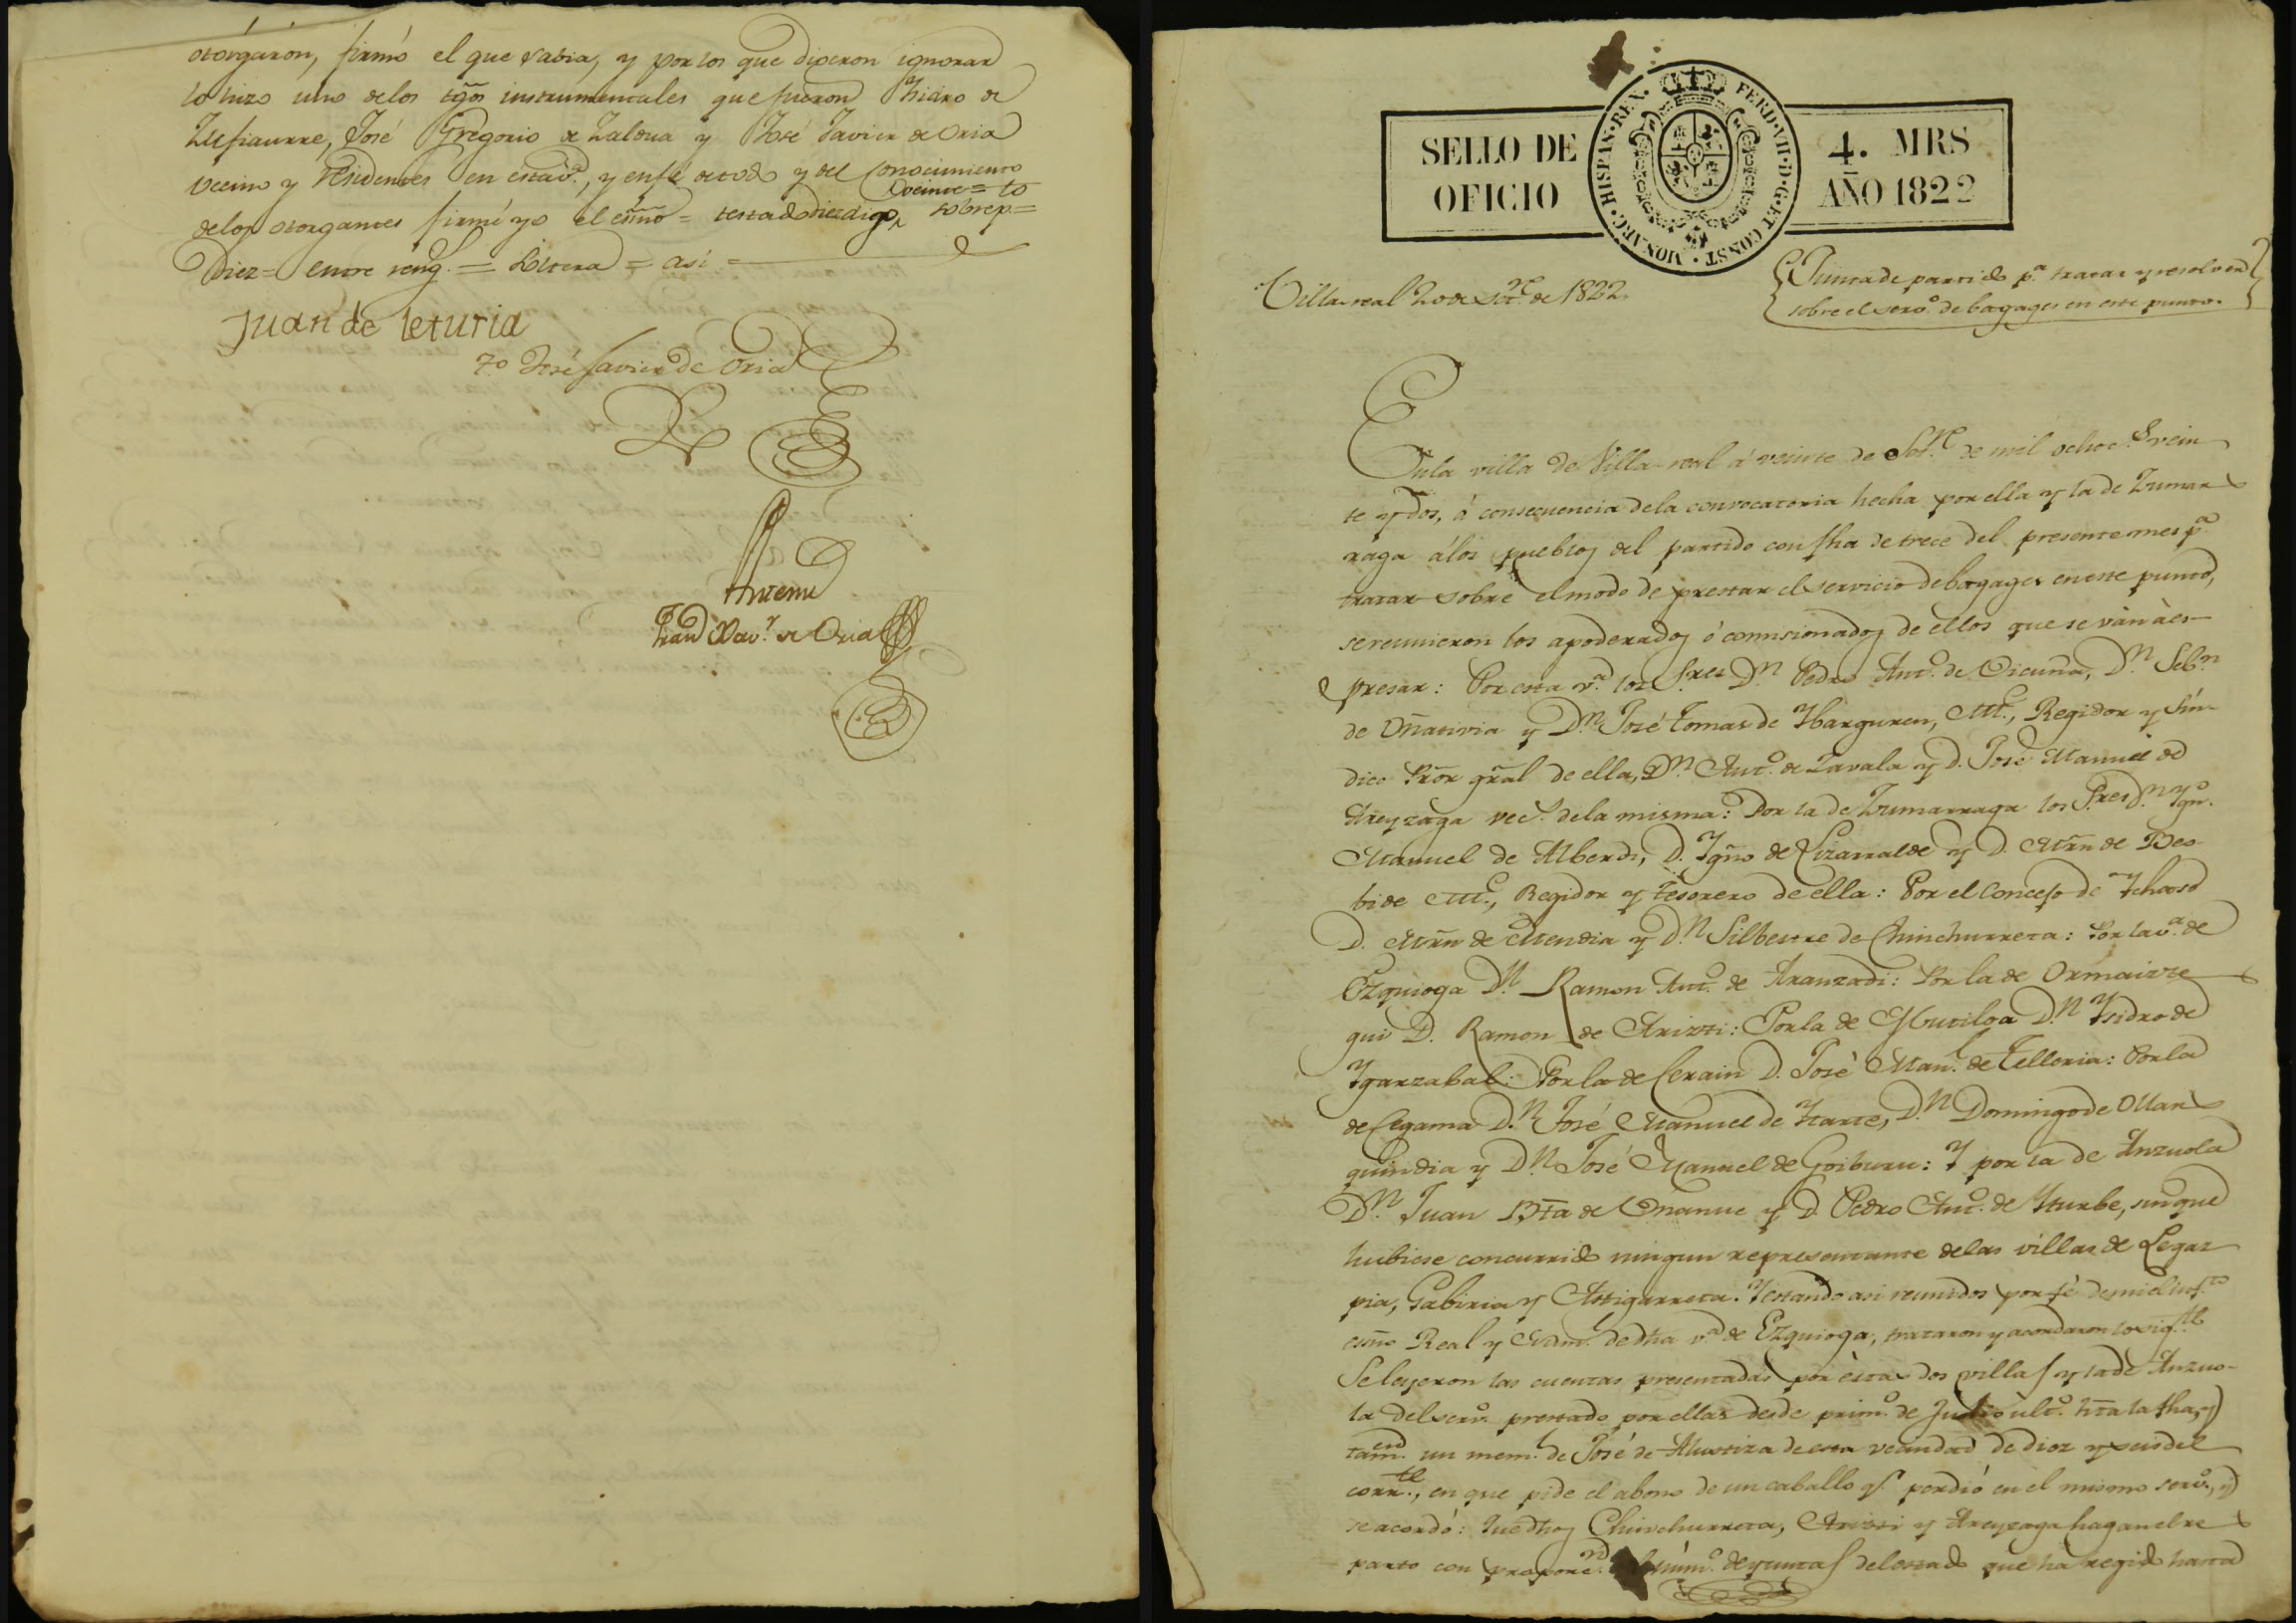 otorgaron, firmó el que savia, y por los que dixeron ignorar
lo hizo uno delos tgõs instrumentales que fueron Ysidro de
Zufiaurre, José Gregorio de Zaldua y José Javier de Oria
vecino y residentes en esta v.ª, y en fé de todo y del conocimiento
delos otorgantes firmé yo el esñno = testado diez digo, sobrep.=
veinte = to
Diez = entre reng. = Lótera = asi =
Juan de leturia
T.º José Javier de Oria
Antemi
Juan Xav.r de Oria
SELLO DE OFICIO
HISPAN·REX· FERD·VII·D·G·ET CONST·MONARC·
4. MRS
AÑO 1822
Villa-real 20 de Set.re de 1822.
Junta de partido p.ª tratar y resolver
sobre el serv.º de bagages en este punto.
En la villa de Villa-real á veinte de Set.re de mil ochoc.s vein
te y dos, á consecuencia dela convocatoria hecha por ella y la de Zumar
raga álos pueblos del partido con fha de trece del presente mes p.ª
tratar sobre el modo de prestar el servicio de bagages en este punto,
se reunieron los apoderados ó comisionados de ellos que se ván à es-
presar: Por esta v.ª los S.res D.n Pedro Ant.º de Oicuña, D.n Seb.n
de Oñativia y D.n José Tomas de Ybarguren, Alc.e, Regidor y Sín-
dico Prõr grãl de ella, D.n Ant.º de Zavala y d. José Manuel de
Areyzaga vec.s dela misma: Por la de Zumarraga los S.res D.n Ygn.º
Manuel de Alberdi, D. Ygño de Lizarralde y D. Mrñ de Beo-
bide Alc.e, Regidor y tesorero de ella: Por el Concejo de Ychaso
D. Mrñ de Mendia y D.n Silbestre de Chinchurreta: Por la v.ª de
Ezquioga D.n Ramon Ant.º de Aranzadi: Por la de Ormaizte
gui D. Ramon de Arizti: Por la de Mutiloa D.n Ysidro de
Ygarzabal: Por la de Cerain D. José Man.l de Telleria: Por la
de Cegama D.n José Manuel de Ytarte, D.n Domingo de Ollar
quindia y D.n José Manuel de Goiburu: Y por la de Anzuola
D.n Juan Btã de Onanue y D. Pedro Ant.º de Yturbe, sin que
hubiese concurrido ningun representante delas villas de Legaz
pia, Gabiria y Astigarreta. Y estando asi reunidos por fé de mi el inf.to
esñno Real y Num.l de dha v.ª de Ezquioga, trataron y acordaron lo sig.te
Se leyeron las cuentas presentadas por estas dos villas y la de Anzuo-
la del serv.º prestado por ellas desde prim.º de Julio ult.º htã la fha, y
tam.en un mem.l de José de Alustiza de esta vecindad de diez y seis del
corr.te, en que pide el abono de un caballo q.e perdió en el mismo serv.º, y
se acordó: Que dhos Chinchurreta, Arizti y Areyzaga hagan el re
parto con proporc.n núm.º de yuntas del estado que ha regido hasta